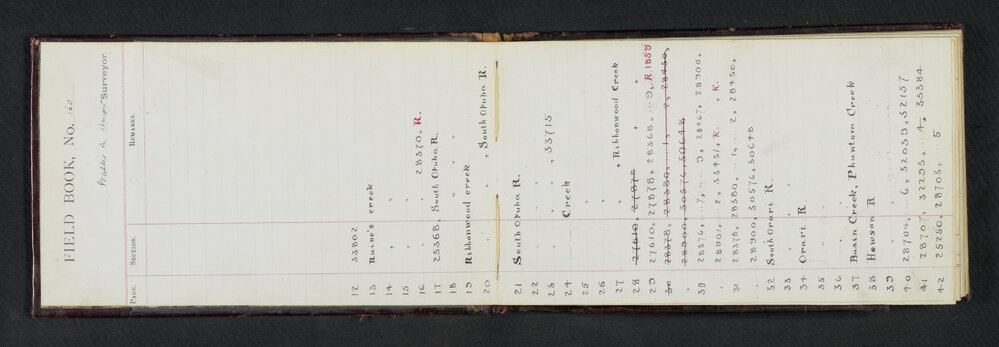 FIELD BOOK, No. 160
Surveyor.
PAGE. SECTION. REMARKS.
12 33802
13 Raine's creek
14 " "
15 " "
16 " . 28370, R.
17 25368, South Opuha R.
18 " "
19 Ribbonwood creek
20 " " , South Opuha R.
21 South Opuha R.
22 " "
23 " " , 33715
24 Creek
25 " "
26 " "
27 " , Ribbonwood Creek
28 27610, 27878 "
29 27610, 27878, 28368, ... 9, R 1859
30 28378, 28380, ... 1, ... 2, 28430,
. 28900, 30576, 30648
30 28376, ... 7, ... 9, 28467, 28900,
. 28901, ... 2, 33431, R. , R.
31 28378, 28380, ... 1, ... 2, 28430,
28900, 30576, 30648
32 South Orari R.
33 " "
34 Orari R.
35 "
36 "
37 Basin Creek, Phantom Creek
38 Hewson R
39 " "
40 28704, ... 6, 32039, 32157
41 28707, 32293, ... 4, 35384
42 25250, 28703, ... 5